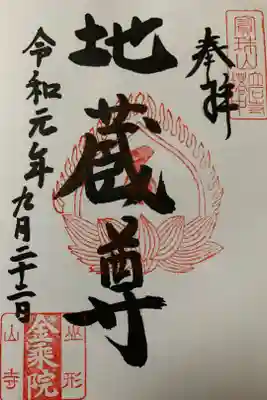 奉拝
地蔵尊
令和元年九月二十二日
金乗院
山形
山寺